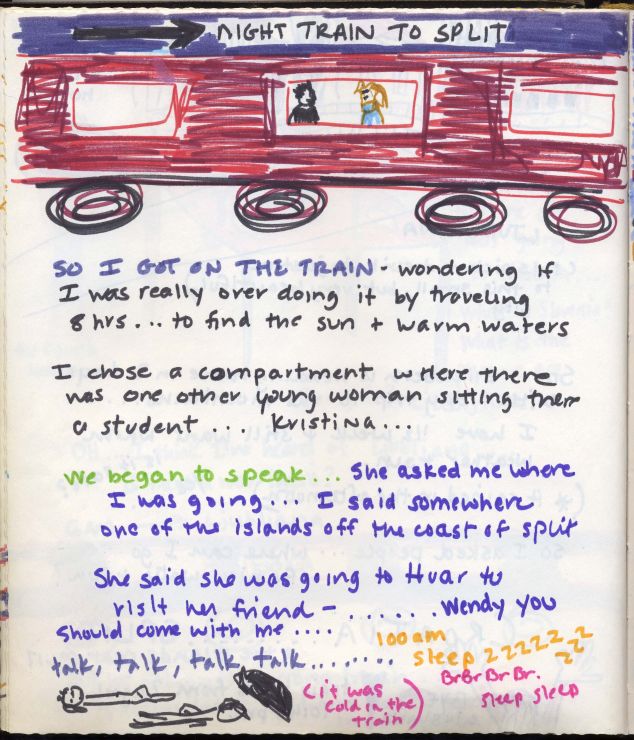 NIGHT TRAIN TO SPLIT
SO I GOT ON THE TRAIN - wondering if
I was really over doing it by traveling
8 hrs... to find the sun + warm waters
I chose a compartment where there
was one other young woman sitting there
a student ... Kristina...
we began to speak... She asked me where
I was going... I said somewhere
one of the islands off the coast of split
She said she was going to Hvar to
visit her friend - ...... Wendy you
should come with me ....
talk, talk, talk, talk........
100am
sleep zzzzzzzzz
BrBrBrBr.
(it was
cold in the
train)
sleep sleep